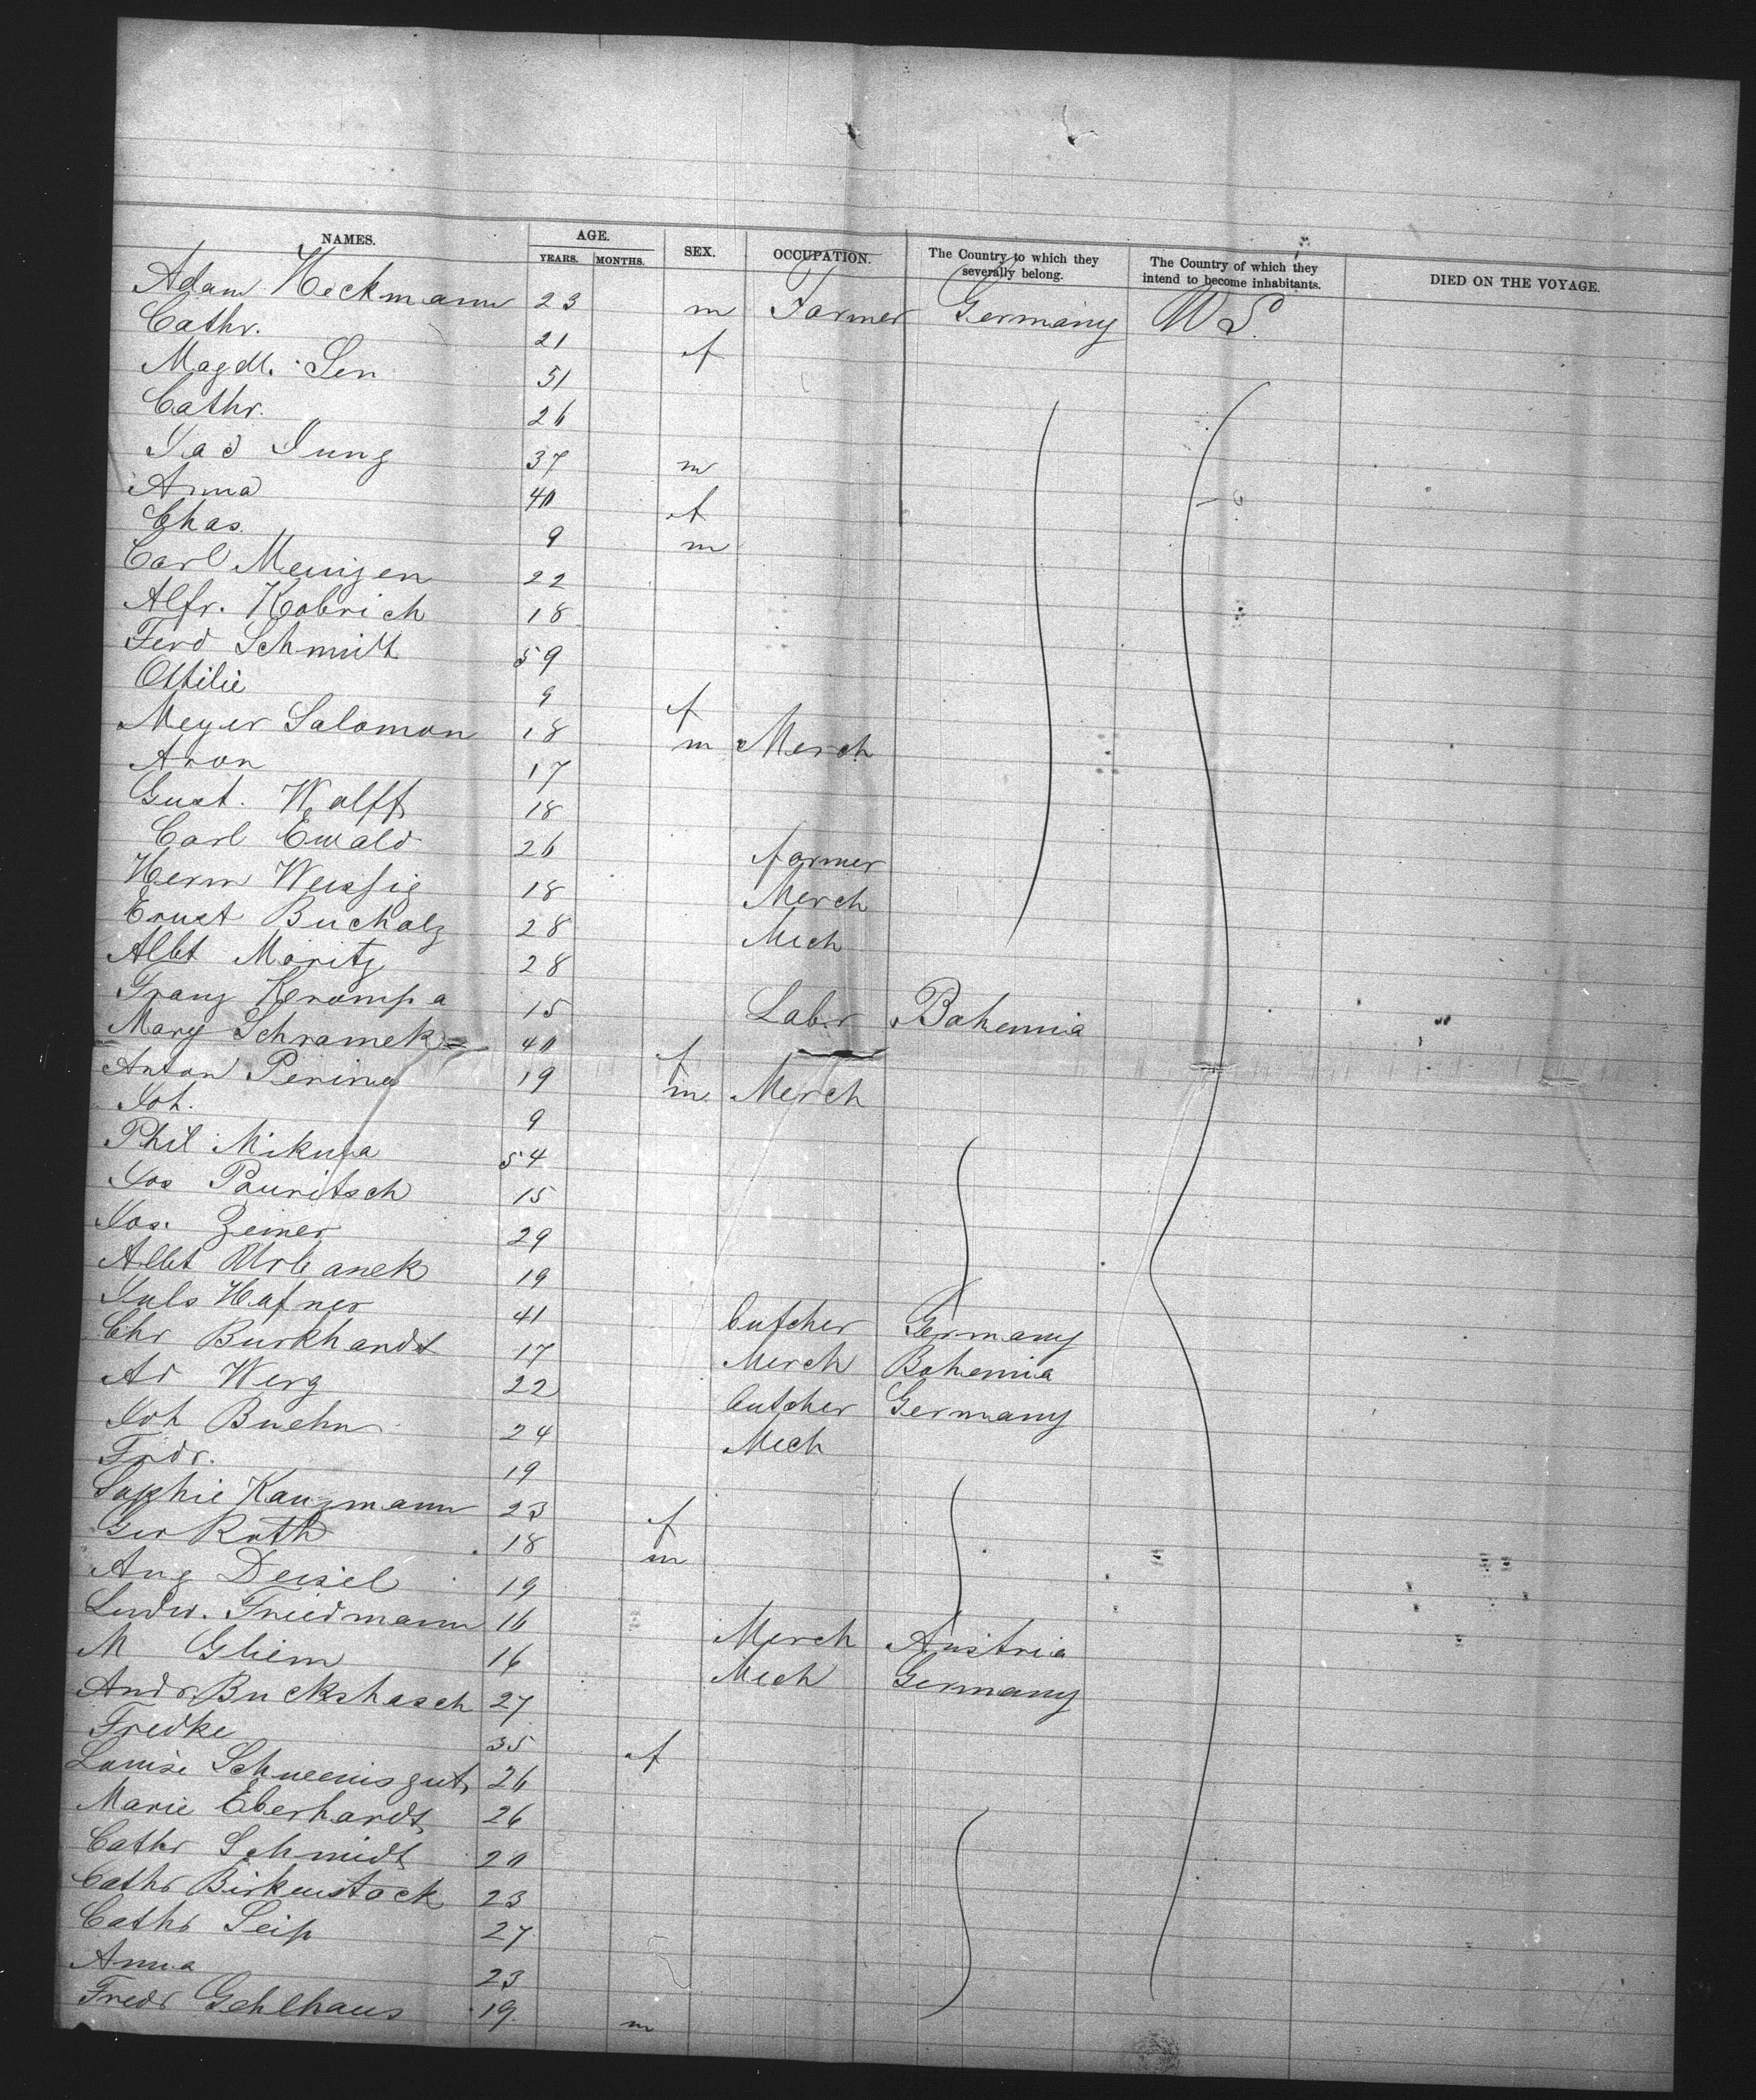 NAMES. AGE. SEX. OCCUPATION. The Country to which they severally belong. The Country of which they intend to become inhabitants. DIED ON THE VOYAGE.
YEARS. MONTHS.
Adam Heckmann 23 m Farmer Germany US
Cathr. 21 f
Magdl. Sen 51
Cathr. 26
Jac Jung 37 m
Anna 40 f
Chas. 9 m
Carl Meinzen 22
Alfr. Kobrich 18
Ferd Schmidt 59
Ottilie 9 f
Meyer Salomon 18 m Merch
Aron 17
Gust. Wolff 18
Carl Ewald 26 farmer
Herm Weissig 18 Merch
Ernst Bucholz 28 Mech
Albt Moritz 28
Franz Krompa 15 Labr Bohemia
Mary Schramek 40 f
Anton Perina 19 m Merch
Joh. 9
Phil Mikula 54
Jos Pauritsch 15
Jos. Zeiner 29
Albt Urbanek 19
Juls Hafner 41 butcher Germany
Chr Burkhardt 17 Merch Bohemia
Ad Werg 22 butcher Germany
Joh Buehn 24 Mech
Frdr. 19
Sophie Kanzmann 23 f
Geo Roth 18 m
Aug Deisel 19
Ludw. Friedmann 16 Merch Austria
M Gliem 16 Mech Germany
Andr. Buckshasch 27
Fredke 35 f
Louise 26
Marie Eberhardt 26
Cathr Schmidt 20
Cathr Birkenstock 23
Cathr Seip 27
Anna 23
Fredr Gehlhaus 19 m